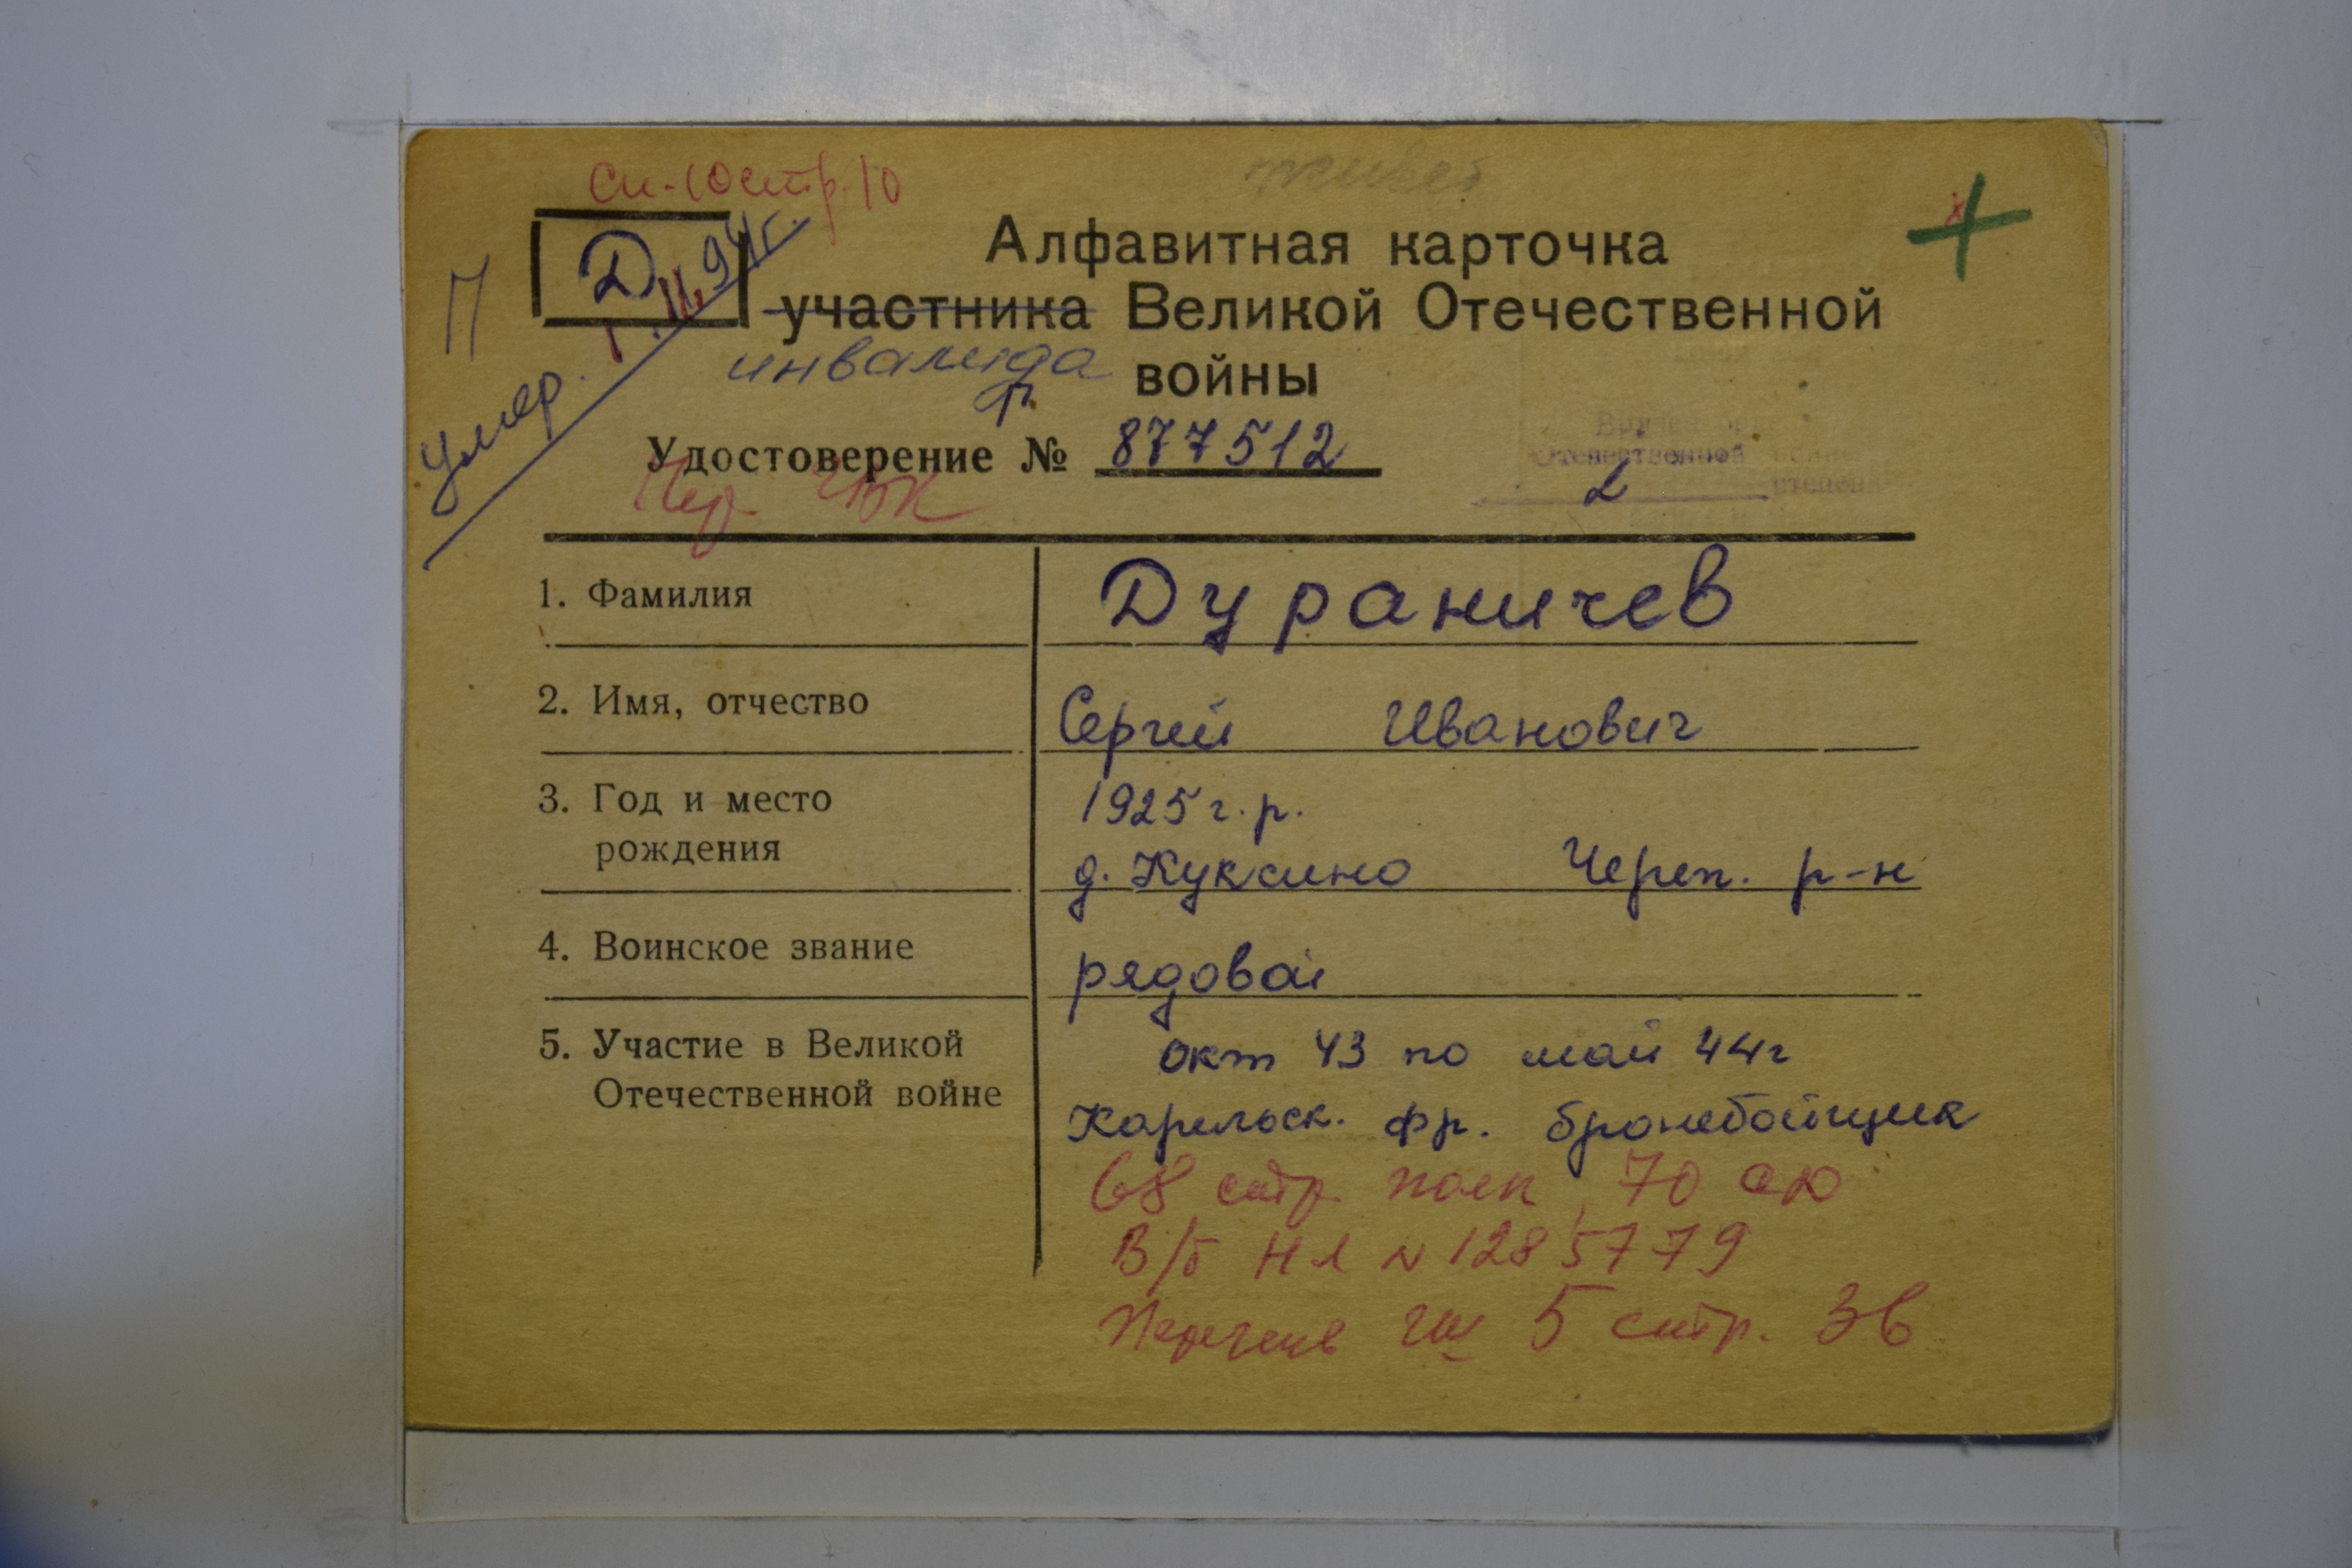 Сп-10 стр. 10
живет
П
Д
Умер. 1.11.94г.
Алфавитная карточка
участника Великой Отечественной
инвалида
войны
Р
Удостоверение № 877512
Чер. ГВК
Отечественной войны
2 степени
1. Фамилия
Дураничев
2. Имя, отчество
Сергей Иванович
3. Год и место
рождения
1925 г.р.
д. Куксино Череп. р-н
4. Воинское звание
рядовой
5. Участие в Великой
Отечественной войне
окт 43 по май 44г
Карельск. фр. бронебойщик
68 стр. полк, 70 сд
В/б НЛ № 1285779
Перечень гш 5 стр.